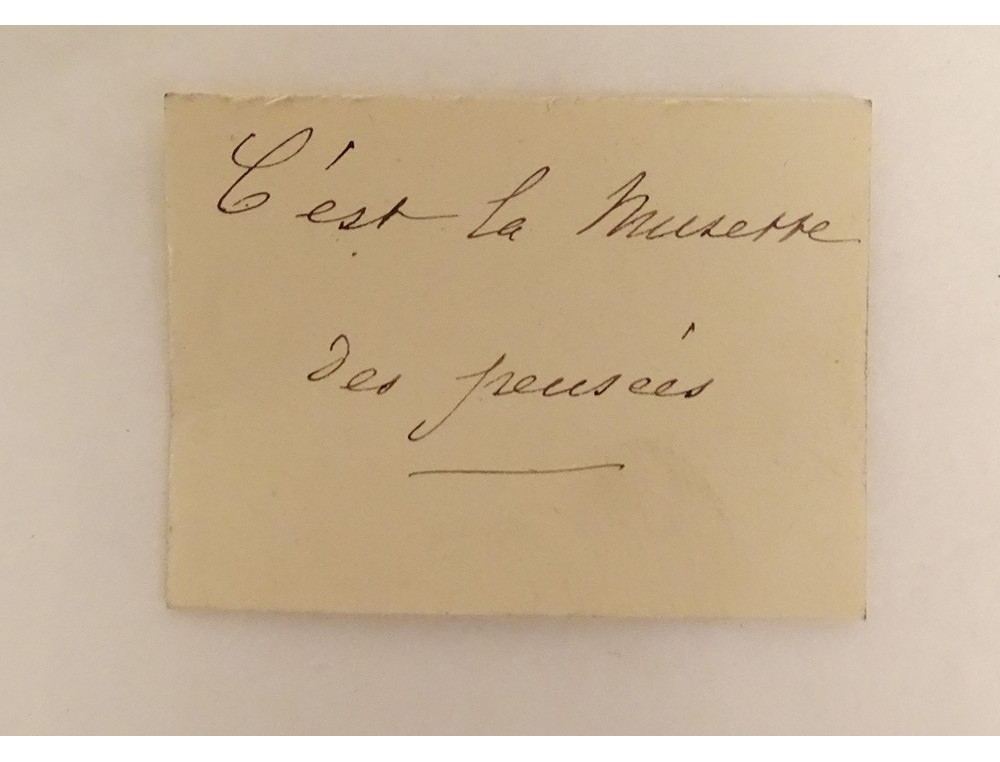 C'est la Musette
des pensées